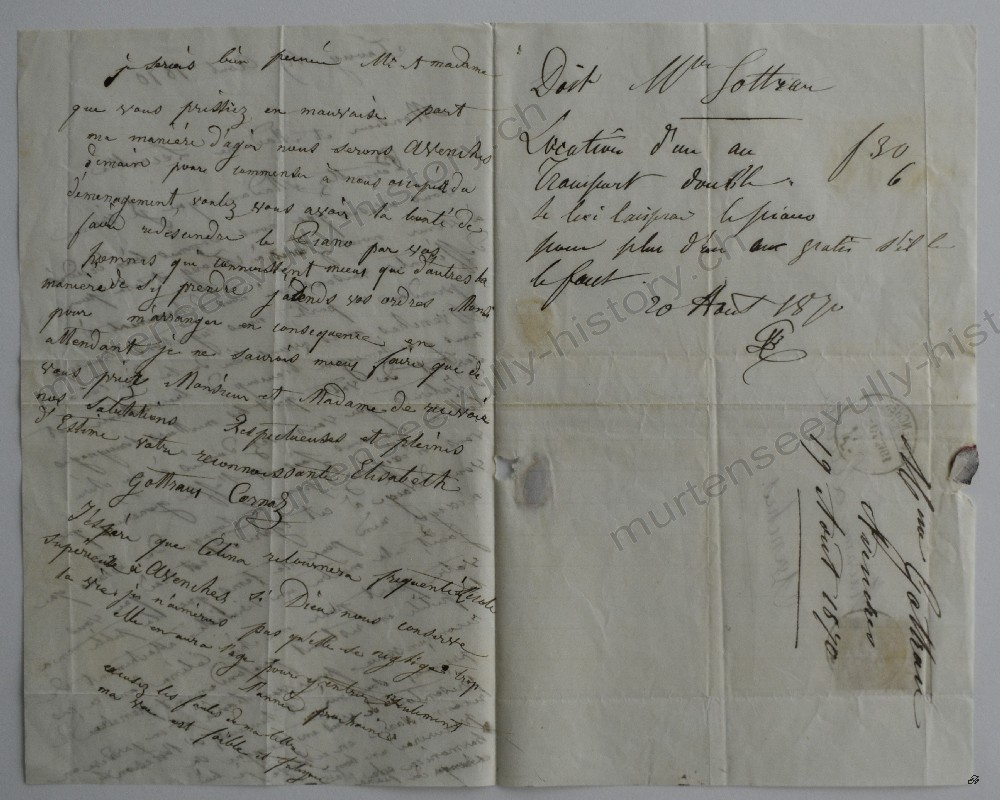 je serais bien peinée Mr & madame
que vous prissiez en mauvaise part
ma manière d'agir nous serons Avenches
demain pour commenser à nous occupér du
démenagement voulez vous avoir la bonté de
faire redescendre le Piano par vos
hommes qui connaissent mieux que d'autres la
manière de s'y prendre j'attends vos ordres Monsr
pour m'arranger en consequence en
attendant je ne saurois mieux faire que de
vous priér Monsieur et Madame de recevoir
nos salutations Respectueuses et pleines
d'Estime votre reconnaissante Elisabeth
Gottraus Cornaz
J'espére que Celina retournera frequenter l'école
superieure à Avenches si Dieu nous conserve
la vie, je n'aimerois pas qu'elle se négligea trop
elle en aura l'age pour y entrer seulement
l'année prochaine
excusez les fautes de ma lettre
ma vue est foible et
Doit Mme Gottrau
Locatiôn d'un an f 30
Transport double. 6
Je lui laisserai le piano
pour plus d'un an gratis s'il le
le faut
20 Août 1870
Mme Gottrau
Avenches
19 Août 1870
murtenseevully-history.ch
murtenseevully-history.ch
murtenseevully-history.ch